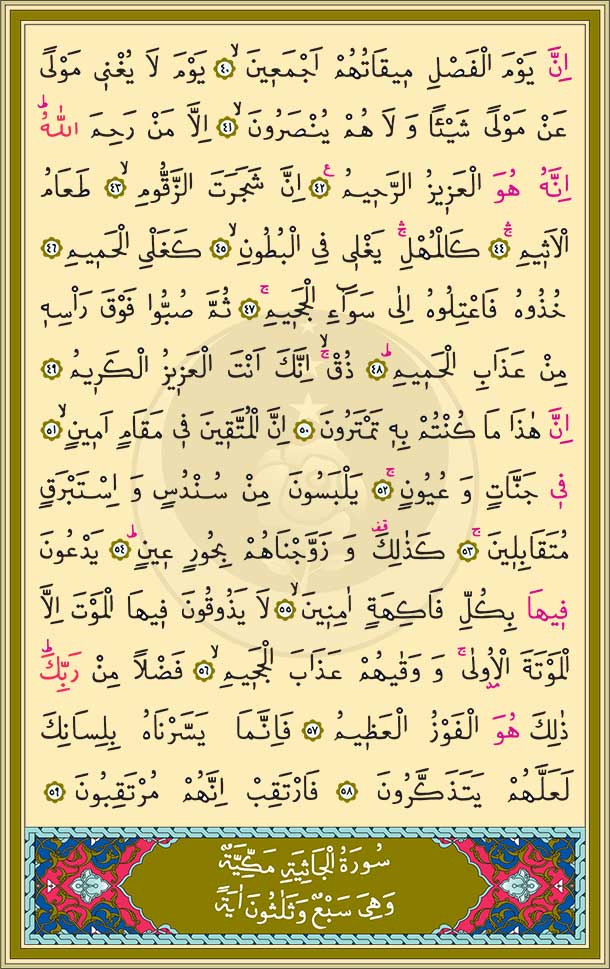 اِنَّ يَوْمَ الْفَصْلِ مٖيقَاتُهُمْ اَجْمَعٖينَۙ ﴿٤٠﴾ يَوْمَ لَا يُغْنٖي مَوْلًى
عَنْ مَوْلًى شَيْـًٔا وَ لَا هُمْ يُنْصَرُونَۙ ﴿٤١﴾ اِلَّا مَنْ رَحِمَ اللّٰهُؕ
اِنَّهُ هُوَ الْعَزٖيزُ الرَّحٖيمُࣖ ﴿٤٢﴾ اِنَّ شَجَرَتَ الزَّقُّومِۙ ﴿٤٣﴾ طَعَامُ
الْاَثٖيمِۛۚ ﴿٤٤﴾ كَالْمُهْلِۛۚ يَغْلٖي فِي الْبُطُونِۙ ﴿٤٥﴾ كَغَلْيِ الْحَمٖيمِ ﴿٤٦﴾
خُذُوهُ فَاعْتِلُوهُ اِلٰى سَوَٓاءِ الْجَحٖيمِۚ ﴿٤٧﴾ ثُمَّ صُبُّوا فَوْقَ رَاْسِهٖ
مِنْ عَذَابِ الْحَمٖيمِؕ ﴿٤٨﴾ ذُقْۚۙ اِنَّكَ اَنْتَ الْعَزٖيزُ الْكَرٖيمُ ﴿٤٩﴾
اِنَّ هٰذَا مَا كُنْتُمْ بِهٖ تَمْتَرُونَ ﴿٥٠﴾ اِنَّ الْمُتَّقٖينَ فٖي مَقَامٍ اَمٖينٍۙ ﴿٥١﴾
فٖي جَنَّاتٍ وَ عُيُونٍۚ ﴿٥٢﴾ يَلْبَسُونَ مِنْ سُنْدُسٍ وَ اِسْتَبْرَقٍ
مُتَقَابِلٖينَۚ ﴿٥٣﴾ كَذٰلِكَ۠ وَ زَوَّجْنَاهُمْ بِحُورٍ عٖينٍؕ ﴿٥٤﴾ يَدْعُونَ
فٖيهَا بِكُلِّ فَاكِهَةٍ اٰمِنٖينَۙ ﴿٥٥﴾ لَا يَذُوقُونَ فٖيهَا الْمَوْتَ اِلَّا
الْمَوْتَةَ الْاُولٰىۚ وَ وَقٰيهُمْ عَذَابَ الْجَحٖيمِۙ ﴿٥٦﴾ فَضْلًا مِنْ رَبِّكَؕ
ذٰلِكَ هُوَ الْفَوْزُ الْعَظٖيمُ ﴿٥٧﴾ فَاِنَّمَا يَسَّرْنَاهُ بِلِسَانِكَ
لَعَلَّهُمْ يَتَذَكَّرُونَ ﴿٥٨﴾ فَارْتَقِبْ اِنَّهُمْ مُرْتَقِبُونَ ﴿٥٩﴾
سُورَةُ الْجَاثِيَةِ مَكِّيَّةٌ
وَهِيَ سَبْعٌ وَثَلٰثُونَ اٰيَةً